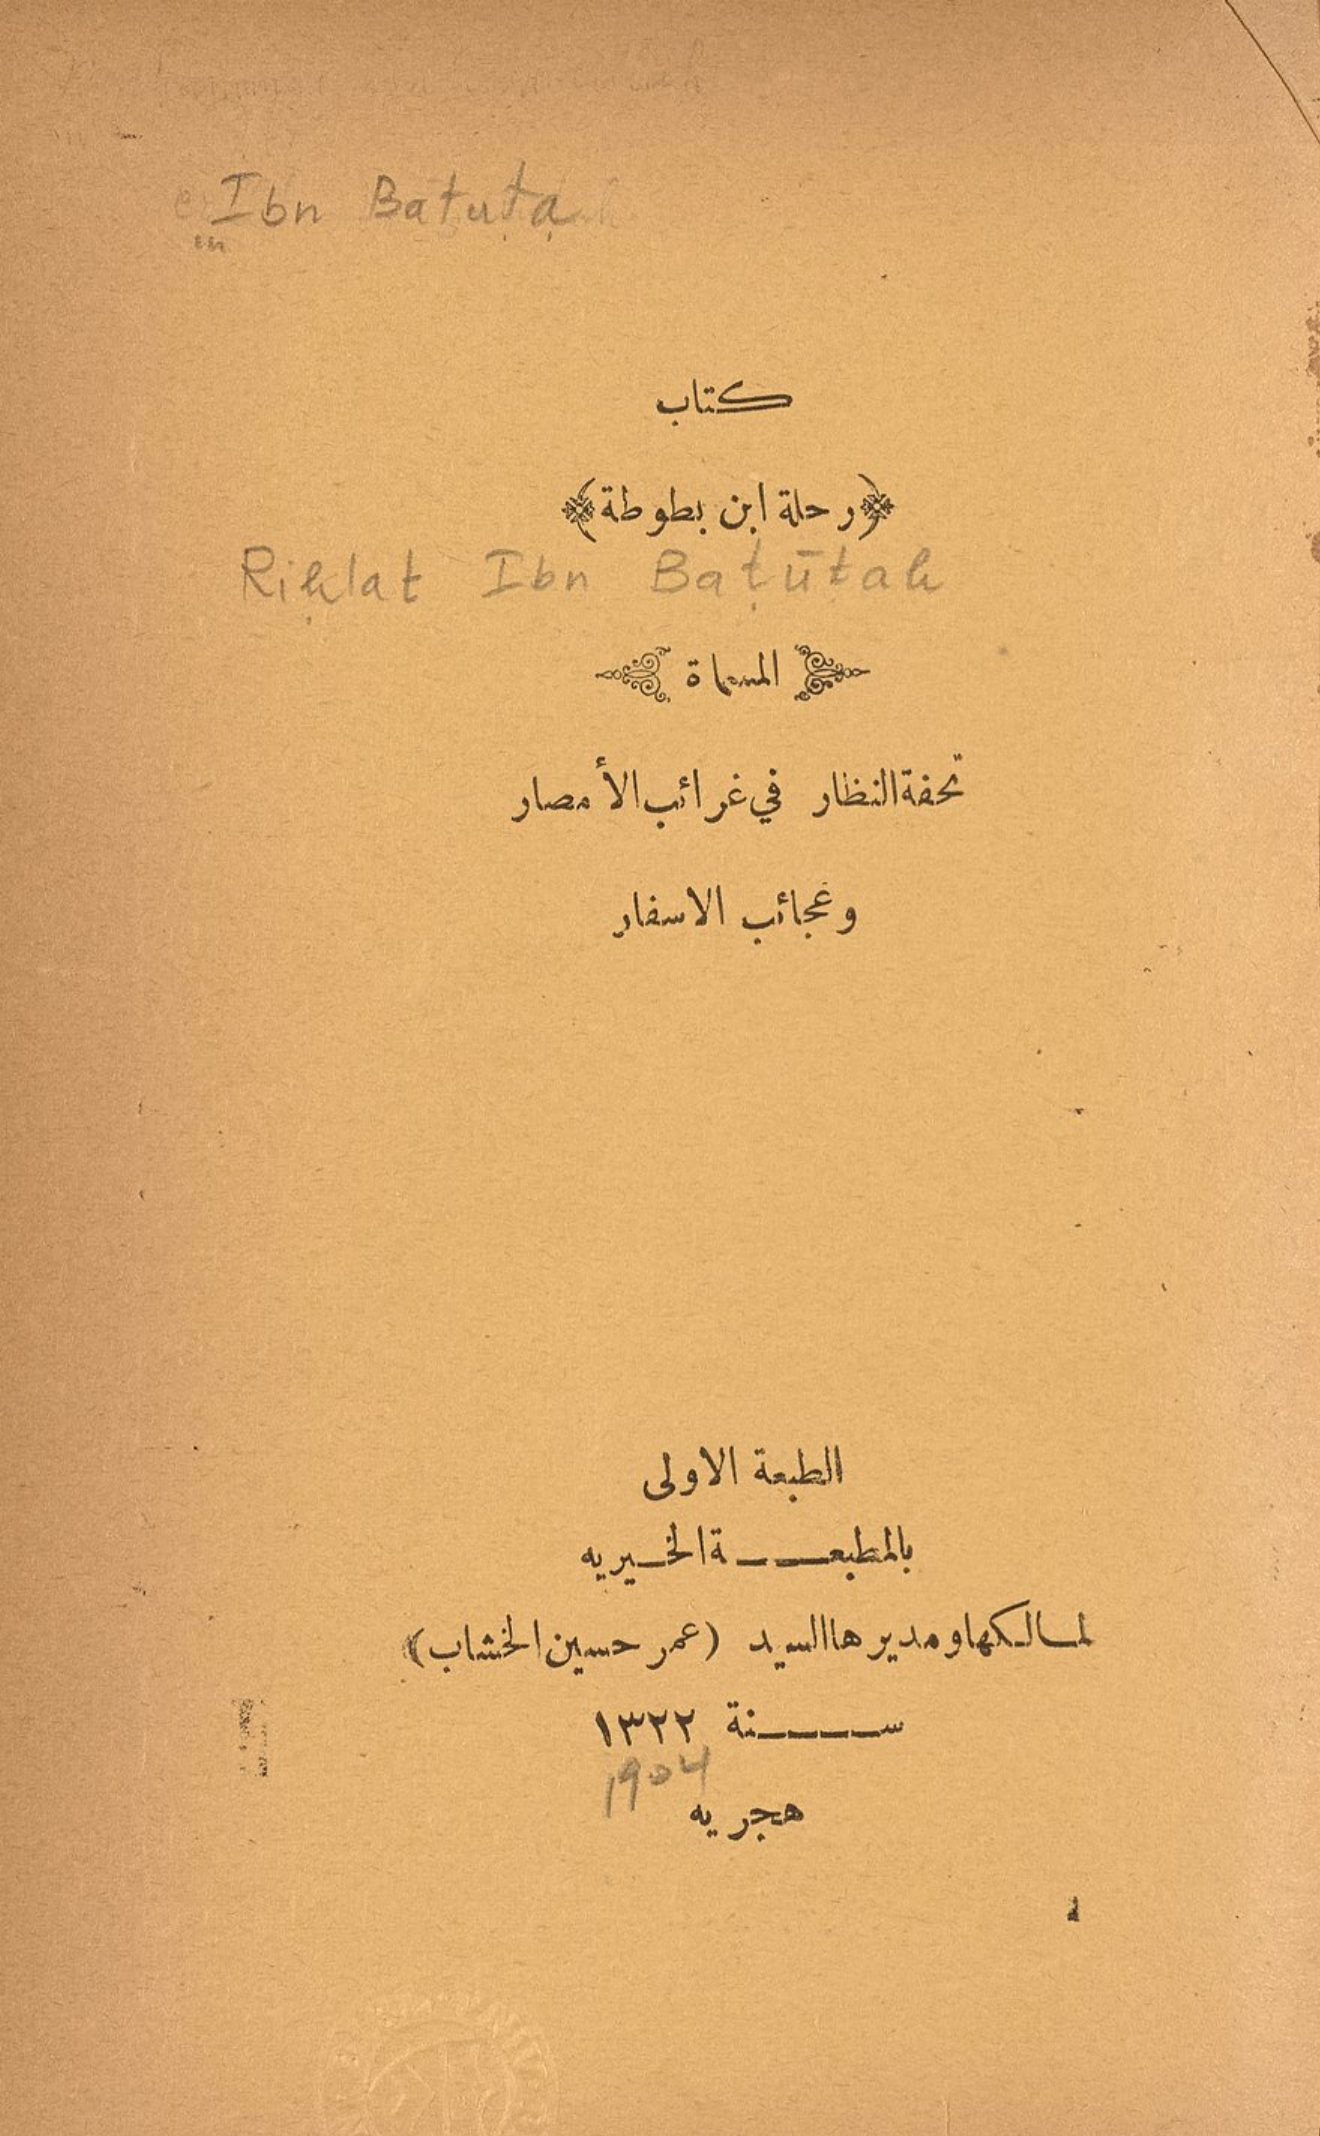 Ibn Baṭuṭa
كتاب
﴿رحلة ابن بطوطة﴾
Riḥlat Ibn Baṭūṭah
المسماة
تحفة النظار في غرائب الأمصار
وعجائب الاسفار
الطبعة الاولى
بالمطبعة الخيريه
لمالكها ومديرها السيد (عمر حسين الخشاب)
سنة ١٣٢٢
1904
هجريه